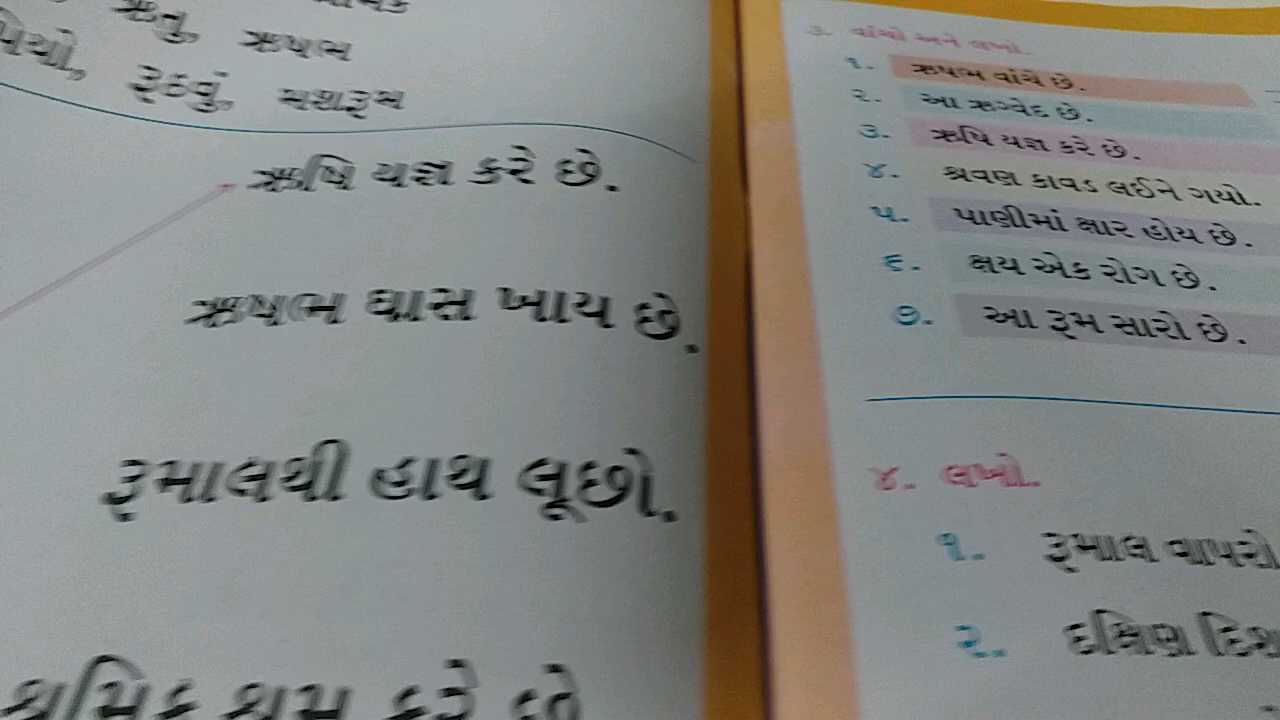 ઋતુ, ઋષભ
રૂઠવું, મશરૂમ
ઋષિ યજ્ઞ કરે છે.
ઋષભ ઘાસ ખાય છે.
રૂમાલથી હાથ લૂછો.
શ્રમિક શ્રમ કરે છે
૩. વાંચો અને લખો.
૧. ઋષભ વાંચે છે.
૨. આ ઋગ્વેદ છે.
૩. ઋષિ યજ્ઞ કરે છે.
૪. શ્રવણ કાવડ લઈને ગયો.
૫. પાણીમાં ક્ષાર હોય છે.
૬. ક્ષય એક રોગ છે.
૭. આ રૂમ સારો છે.
૪. લખો.
૧. રૂમાલ વાપરો
૨. દક્ષિણ